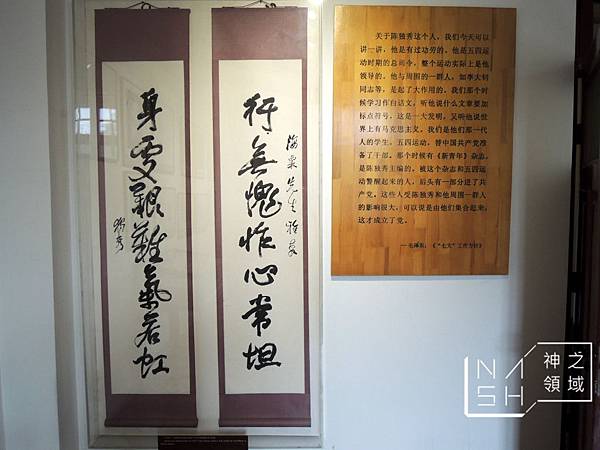 行無愧怍心常坦
海粟先生雅教
身處艱難氣若虹
独秀
关于陈独秀这个人，我们今天可以
讲一讲，他是有过功劳的。他是五四运
动时期的总司令，整个运动实际上是他
领导的。他与周围的一群人，如李大钊
同志等，是起了大作用的。我们那个时
候学习作白话文，听他说什么文章要加
标点符号，这是一大发明，又听他说世
界上有马克思主义。我们是他们那一代
人的学生。五四运动，替中国共产党准
备了干部。那个时候有《新青年》杂志，
是陈独秀主编的。被这个杂志和五四运
动警醒起来的人，后头有一部分进了共
产党。这些人受陈独秀和他周围一群人
的影响很大，可以说是由他们集合起来，
这才成立了党。
—毛泽东：《“七大”工作方针》
NASH
神之
領域